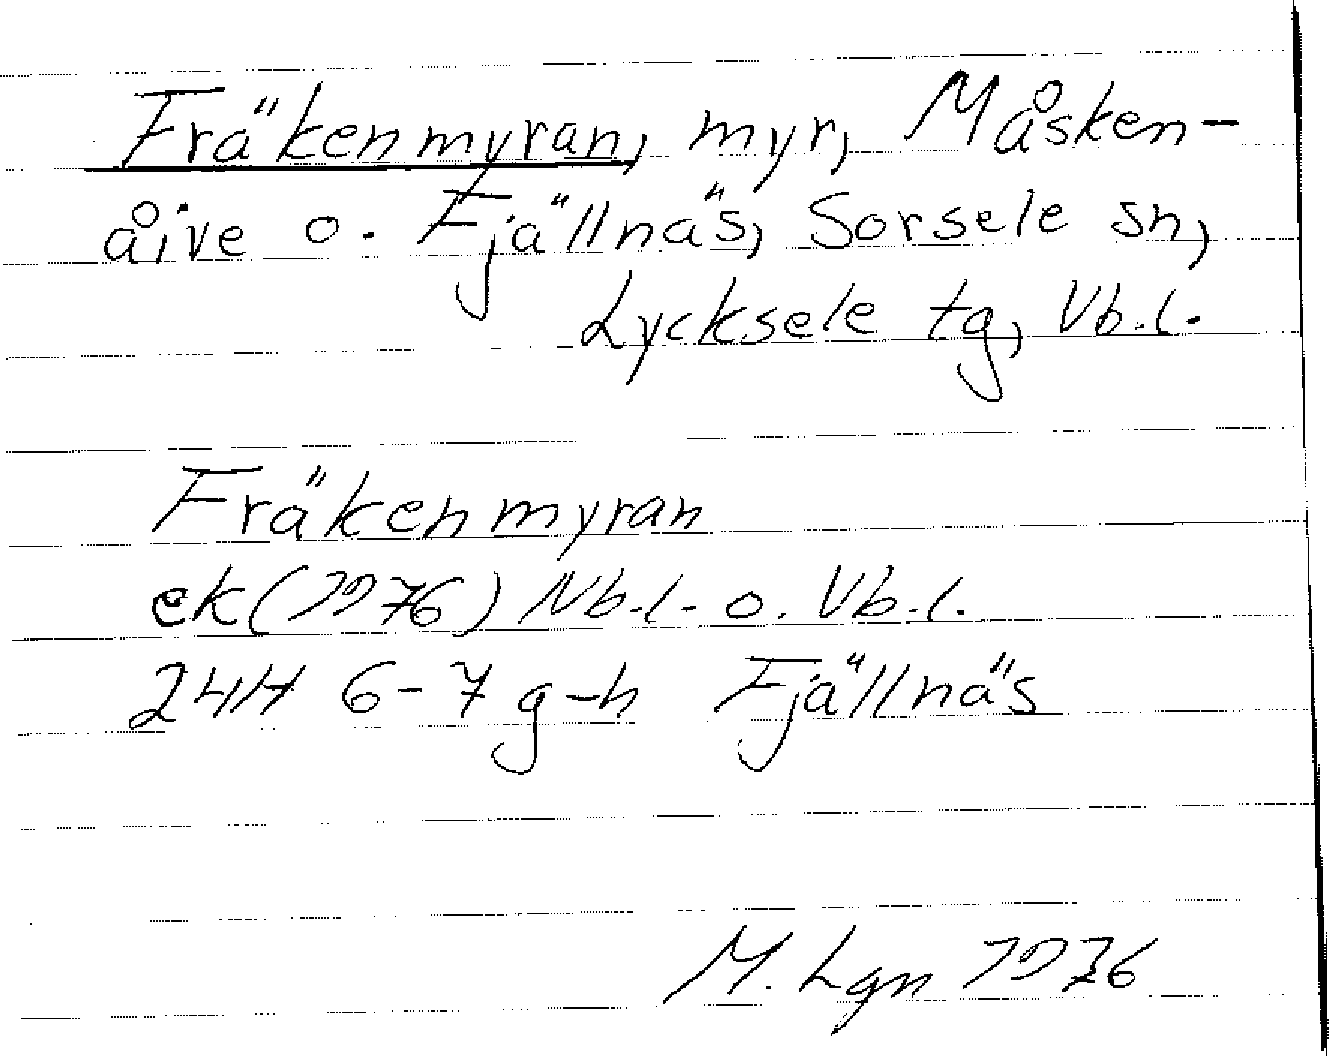 Fräkenmyran, myr, Måsken-
åive o. Fjällnäs, Sorsele sn,
Lycksele tg, Vb.l.
Fräkenmyran
ek (1976) Nb.l. o. Vb.l.
24H 6-7 g-h Fjällnäs
M. Lgn 1976